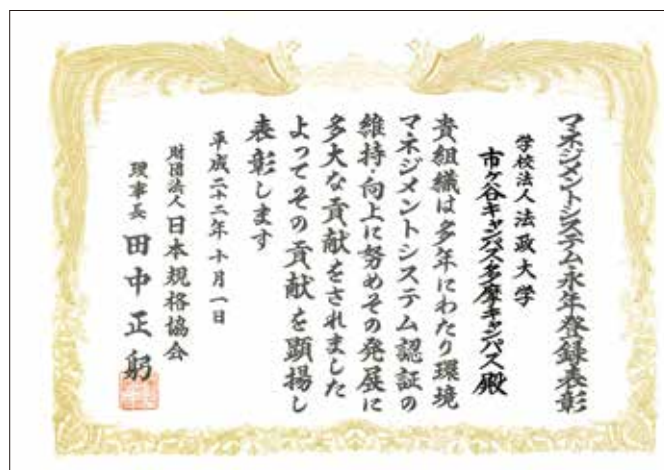 マネジメントシステム永年登録表彰
学校法人法政大学
市ケ谷キャンパス・多摩キャンパス殿
貴組織は多年にわたり環境
マネジメントシステム認証の
維持・向上に努めその発展に
多大な貢献をされました
よってその貢献を顕揚し
表彰します
平成二十二年十月一日
財団法人日本規格協会
理事長田中正躬